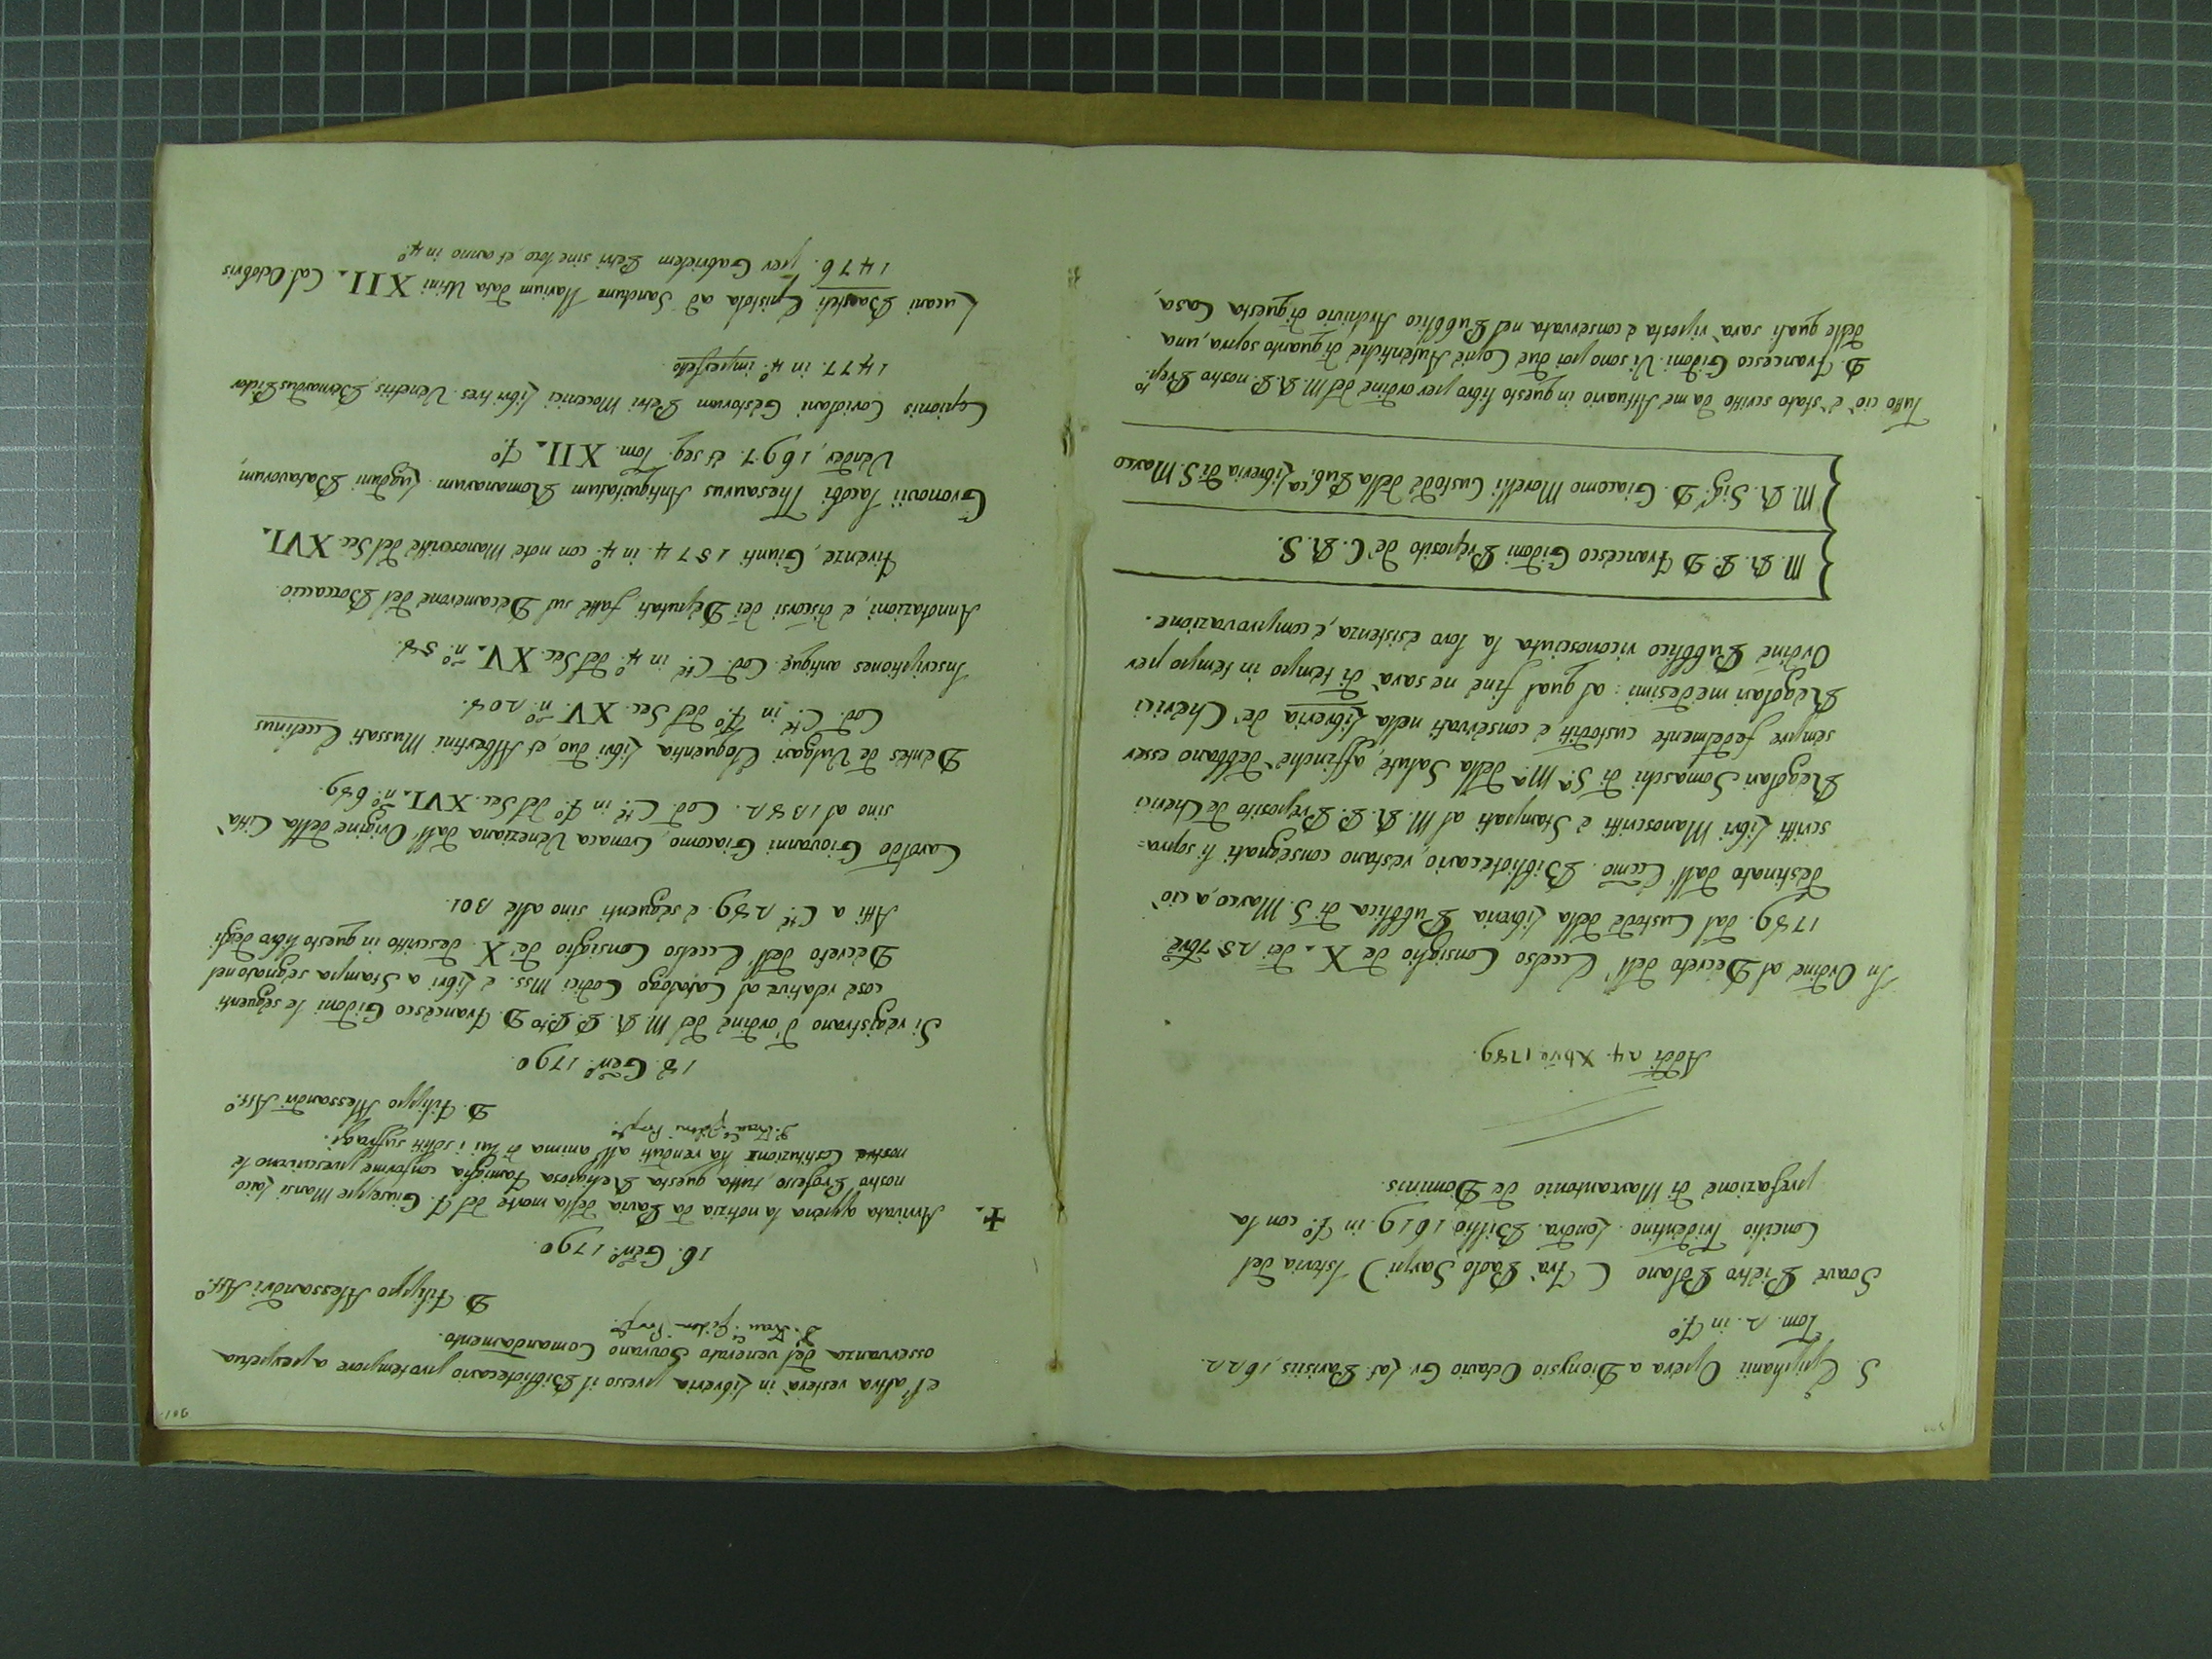 S. Epiphanii Opera a Dionysio Octavio Gr. Lat. Parisiis, 1622
Tom. 2. in f.º
Soave Pietro Polano (Frà Paolo Sarpi) Istoria del
Concilio Tridentino. Londra. Billio, 1619. in f.º con la
prefazione di Marcantonio de Dominis.
Addi 24. Xbre 1789.
In Ordine al Decreto dell' Eccelso Consiglio de X. dei 25 7bre
1789. dal Custode della Libreria Pubblica di S. Marco, a ciò
destinato dall' Eccmo. Bibliotecario, restano consegnati li sopra=
scritti Libri Manoscritti e Stampati al M. R. P. Preposito de Cherici
Regolari Somaschi di S.ª M.ª della Salute, affinchè debbano esser
sempre fedelmente custoditi, e conservati nella Libreria de' Cherici
Regolari medesimi: al qual fine ne sarà di tempo in tempo per
Ordine Pubblico riconosciuta la loro esistenza, e comprovazione.
M. R. P. D. Francesco Gidoni Preposito de' C. R. S.
M. R. Sig.r D. Giacomo Morelli Custode della Pub.ca Libreria di S. Marco
Tutto ciò è stato scritto da me Attuario in questo libro per ordine del M. R. P. nostro Prep.to
D. Francesco Gidoni. Vi sono poi due Copie Autentiche di quanto sopra, una
delle quali sarà riposta e conservata nel Pubblico Archivio di questa Casa,
301
e l'altra resterà in Libreria presso il Bibliotecario pro tempore a perpetua
osservanza del venerato Sovrano Comandamento.
D. Fran.co Gidoni Prep.to
D. Filippo Alessandri Att.º
16. Genn.º 1790.
+. Arrivata appena la notizia da Pavia della morte del F. Giuseppe Mansi Laico
nostro Professo, tutta questa Religiosa Famiglia conforme prescrivono le
nostre Costituzioni ha renduti all' anima di lui i soliti suffragi.
D. Fran.co Gidoni Prep.to
D. Filippo Alessandri Att.º
18. Genn.º 1790.
Si registrano d'ordine del M. R. P. P.to D. Francesco Gidoni le seguenti
cose relative al Catalogo Codici Mss. e Libri a Stampa segnato nel
Decreto dell' Eccelso Consiglio de X descritto in questo libro degli
Atti a C.te 289. e seguenti sino alle 301.
Caroldo Giovanni Giacomo, Cronaca Veneziana dall' Origine della Città
sino al 1382. Cod. C.te in f.º del Sec. XVI. n.º 689.
Dantes de Vulgari Eloquentia Libri duo, et Albertini Mussati Eccelinus
Cod. C.te in f.º del Sec. XV. n.º 208.
Inscriptiones antiquę Cod. C.te in 4.º del Sec. XV. n.º 58.
Annotazioni, e discorsi dei Deputati fatte sul Decamerone del Boccaccio.
Firenze, Giunti 1574. in 4.º con note Manoscritte del Sec. XVI.
Gronovii Iacobi Thesaurus Antiquitatum Romanarum. Lugduni Batavorum,
Vander, 1697. & seg. Tom. XII. f.º
Cepionis Coriolani Gestorum Petri Mocenici Libri tres. Venetiis, Bernardus Pictor
1477. in 4.º imperfetto
Lucani Epistola ad Sanctum Marium data Utini XII. Cal. Octobris
1476. per Gabrielem Petri sine loco, et anno in 4.º